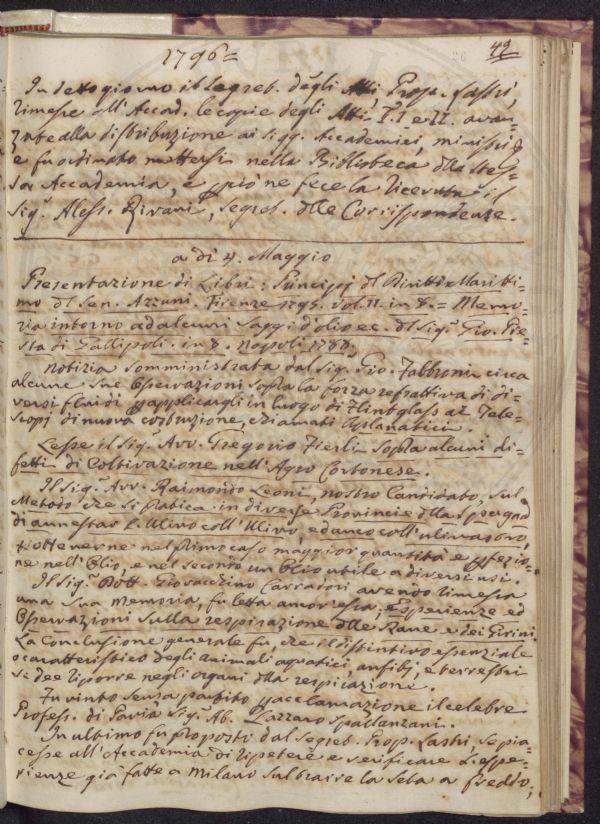 1796=
49
In detto giorno il Segret. degli Atti, Prop. Lastri,
rimesse all'Accad. le copie degli Atti T. I e II. avan=
zate alla distribuzione ai Sigg. Accademici, ministri &
e fu ordinato mettersi nella Biblioteca dlla stes=
sa Accademia, e ne fece la ricevuta il
Sig.r Aless. Rivani, Segret. dlle Corrispondenze.
a dì 4. Maggio
Presentazione di Libri: Principj dl Diritto Maritti=
mo dl Sen. Azzuni. Firenze 1795. vol. II. in 8.= Memo=
ria intorno ad alcuni Saggi d'olio ec. dl Sig.r Gio. Pre=
sta di Gallipoli. in 8. Napoli 1788.
Notizia somministrata dal Sig.r Gio. Fabbroni circa
alcune sue Osservazioni sopra la forza refrattiva di di=
versi fluidi applicargli in luogo di Flintglass ai Tele=
scopj di nuova costruzione, chiamati Aplanatici.
Lesse il Sig.r Avv. Gregorio Fierli sopra alcuni di=
fetti di Coltivazione nell'Agro Cortonese.
Il Sig.r Avv. Raimondo Leoni, nostro Candidato, sul
Metodo che si pratica in diverse Provincie dlla Spagna
di annestar l'Ulivo coll'Ulivo, ed anco coll'ulivastro,
e ottenerne nel primo caso maggior quantità e pfezio=
ne nell'Olio, e nel secondo un Olio utile a diversi usi.
Il Sig.r Dott. Giovacchino Carradori avendo rimessa
una sua Memoria, fu letta ancor essa; Esperienze ed
Osservazioni sulla respirazione dlle Rane e dei Girini.
La Conclusione generale fu, che il distintivo essenziale
o caratteristico degli animali aquatici, anfibj, e terrestri
si dee riporre negli organi dlla respirazione.
Fu vinto senza partito p acclamazione il celebre
Profess. di Pavia Sig.r Ab. Lazzaro Spallanzani.
In ultimo fu proposti dal Segret. Prop. Lastri, se pia=
cesse all'Accademia di ripetere e verificare l'espe=
rienze già fatte a Milano sul trarre la Seta a freddo;